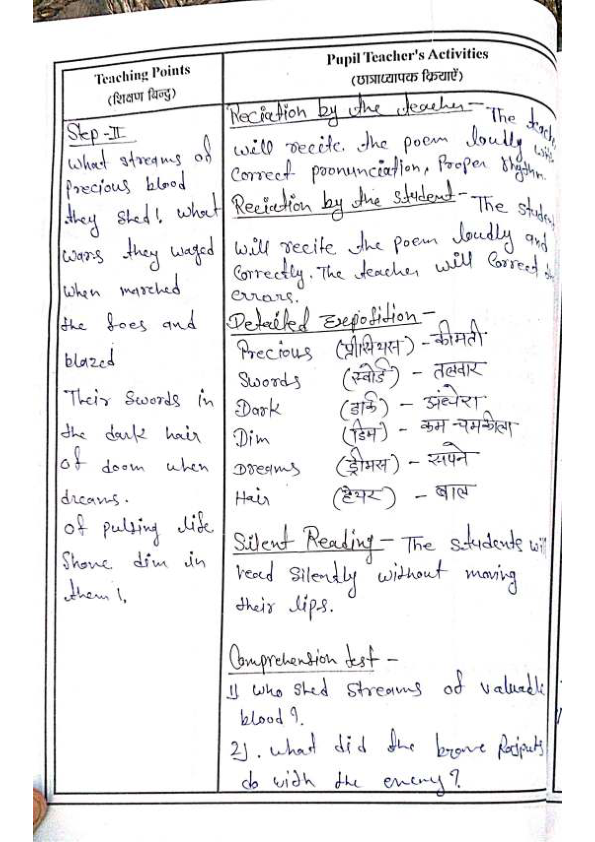 Teaching Points
(शिक्षण बिन्दु)
Step-II
What streams of
precious blood
they shed!, what
wars they waged
when marched
the foes and
blazed
Their Swords in
the dark hair
of doom when
dreams.
of pulsing life
Shone dim in
them!,
Pupil Teacher's Activities
(छात्राध्यापक क्रियाएँ)
Reciation by the teacher - The teache
will recite. the poem loudly with
Correct poonunciation, Proper rhythm.
Reciation by the student - The student
will recite the poem loudly and
Correctly. The teacher will Correct the
errors.
Detailed Exposition -
Precious (प्रीसियस) - कीमती
Swords (स्वोर्ड) - तलवार
Dark (डार्क) - अंधेरा
Dim (डिम) - कम चमकीला
Dreams (ड्रीमस) - सपने
Hair (हेयर) - बाल
Silent Reading - The students will
read silently without moving
their lips.
Comprehension test -
1) who shed streams of valuable
blood?.
2). what did the brave Rajputs
do with the enemy?